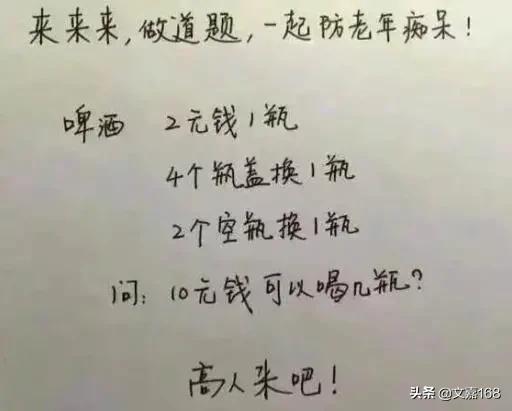 来来来,做道题,一起防老年痴呆!
啤酒 2元钱1瓶
4个瓶盖换1瓶
2个空瓶换1瓶
问:10元钱可以喝几瓶?
高人来吧!
头条 @文嘉168